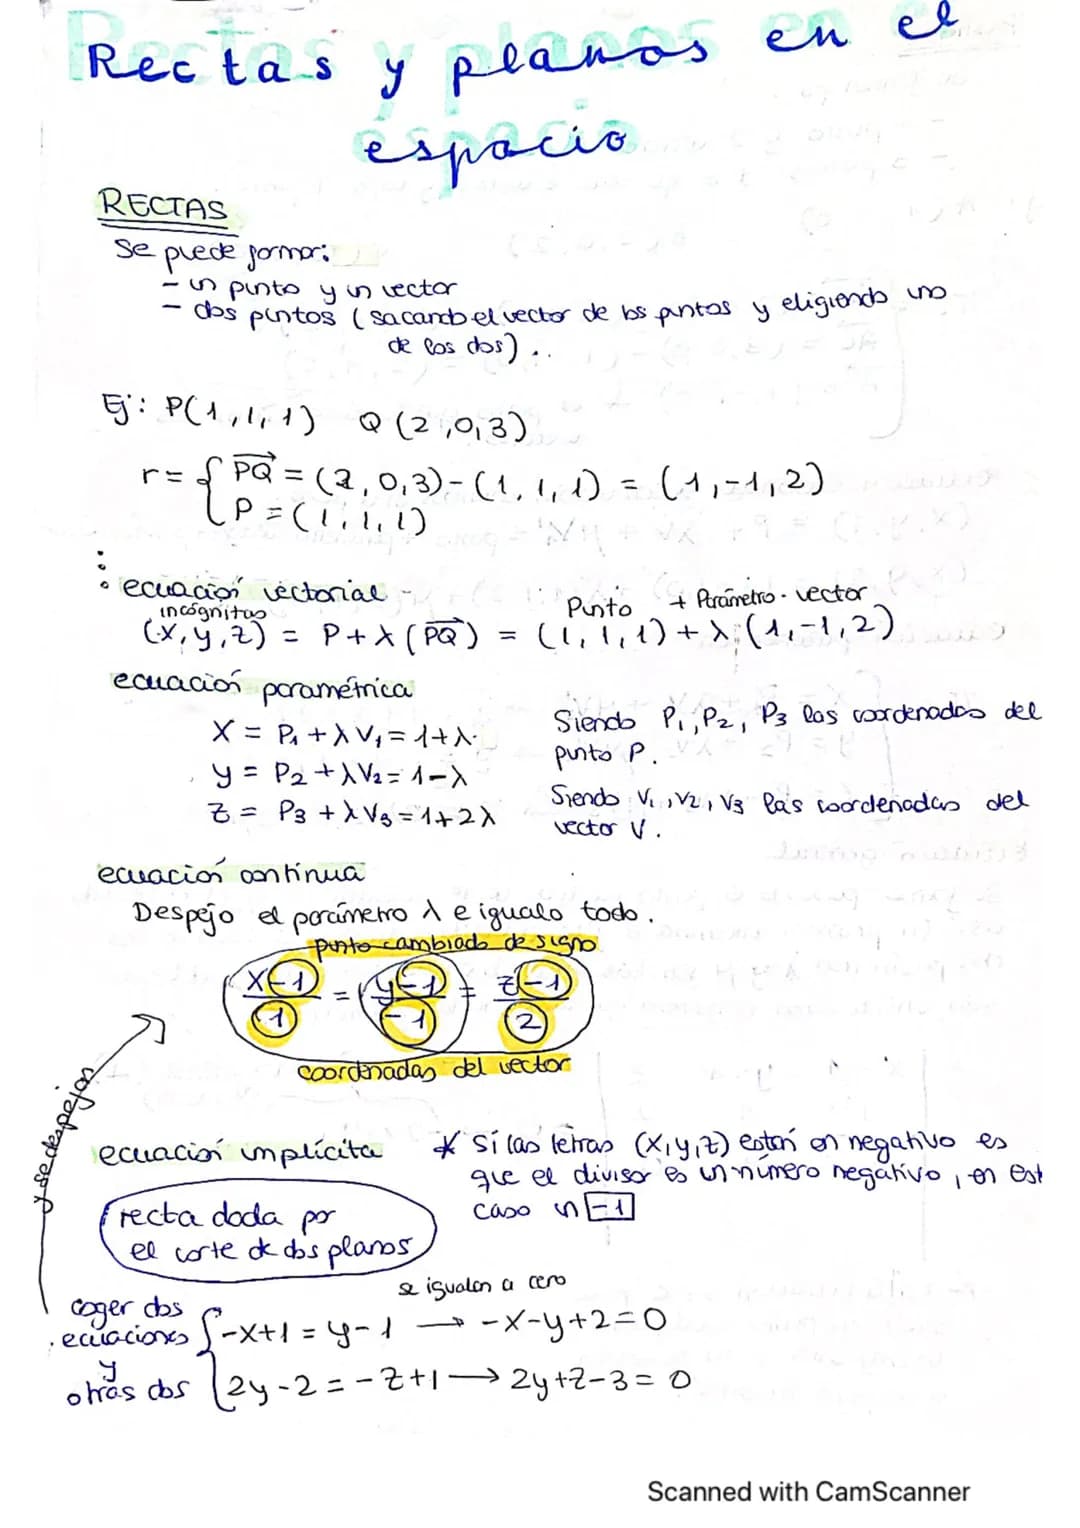 Rectas y planos en el
espacio
RECTAS
Se puede formar:
- un punto y un vector
- dos puntos (sacando el vector de los puntos y eligiendo uno
de los dos)..
Ej: P(1,1,1) Q(2,0,3)
r = { PQ = (2,0,3)-(1,1,1) = (1,-1,2)
P = (1,1,1)
ecuación vectorial -
incógnitas Punto + Parámetro · vector
(x,y,z) = P+λ(PQ) = (1,1,1)+λ·(1,-1,2)
ecuación paramétrica
X = P₁ + λV₁ = 1+λ
y = P₂ + λV₂ = 1-λ
z = P₃ + λV₃ = 1+2λ
Siendo P₁, P₂, P₃ las coordenadas del
punto P.
Siendo V₁, V₂, V₃ las coordenadas del
vector V.
ecuación continua
Despejo el parámetro λ e igualo todo.
punto cambiado de signo
(x-1)/1 = (y-1)/-1 = (z-1)/2
coordenadas del vector
y se despejan
ecuación implícita
* Si las letras (x,y,z) están en negativo es
que el divisor es un número negativo, en est
caso un -1
recta dada por
el corte de dos planos
se igualan a cero
coger dos
ecuaciones
y
otras dos
-x+1 = y-1 → -x-y+2=0
2y-2 = -z+1 → 2y+z-3=0
Scanned with CamScanner